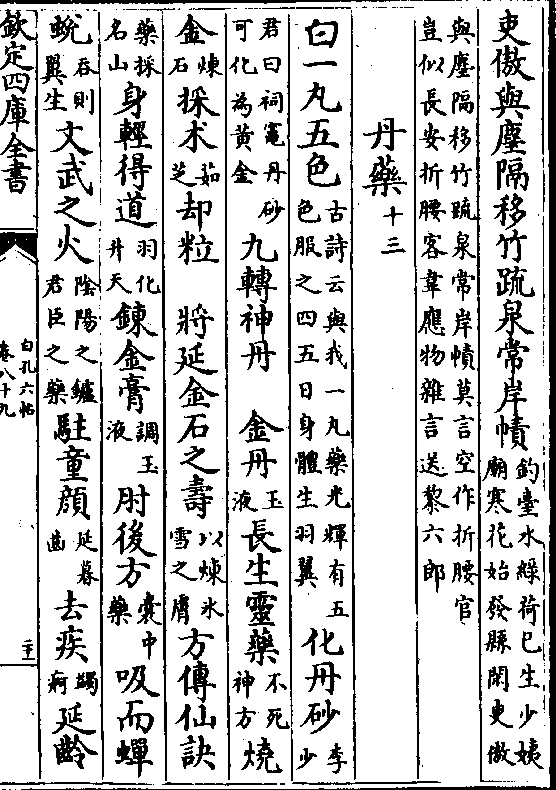 吏傲與塵隔移竹疏泉常岸幘釣臺水綠荷已生少姨廟寒花始發縣閑吏傲
與塵隔移竹疏泉常岸幘莫言空作折腰官豈似長安折腰客韋應物雜言送黎六郎
丹藥十三
白一丸五色古詩云與我一丸藥光輝有五色服之四五日身體生羽翼化丹砂李少
君曰祠竈丹砂可化為黃金九轉神丹 金丹玉液長生靈藥不死神方燒
金煉石採朮茹芝却粒 將延金石之壽以煉氷雪之膚方傳仙訣
藥採名山身輕得道羽化升天鍊金膏調玉液肘後方囊中藥吸而蟬
蛻吞則翼生文武之火陰陽之鑪君臣之藥駐童顔延暮齒去疾蠲痾延齡
欽定四庫全書 白孔六帖 卷八十九